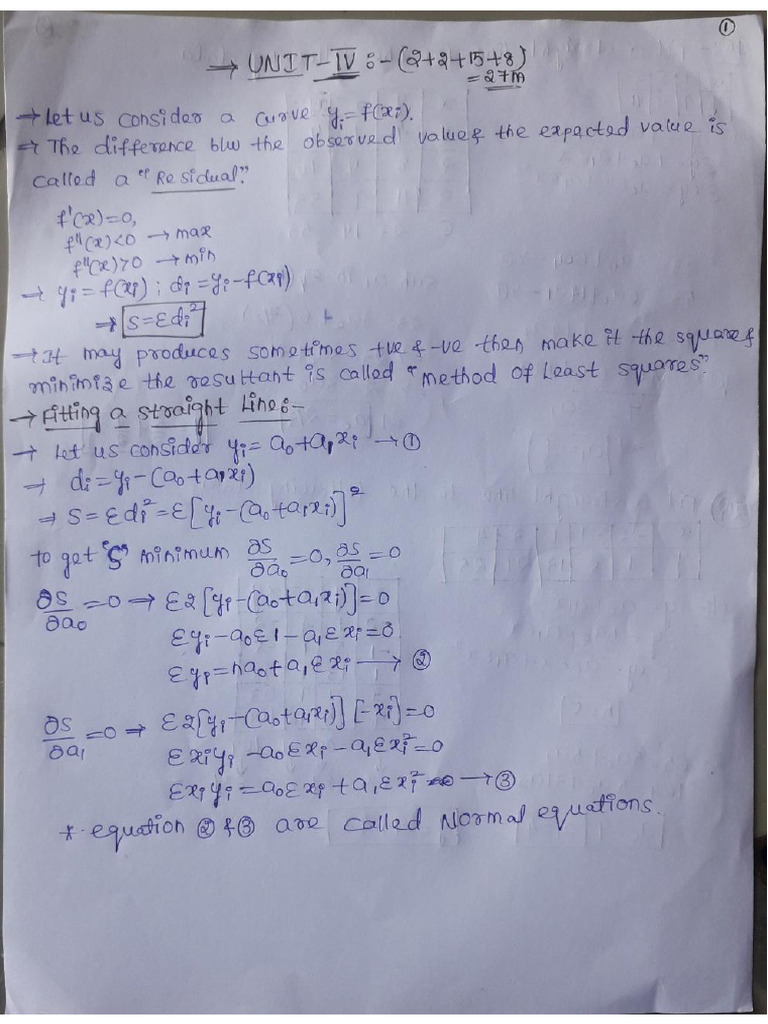 ①
→ UNIT-IV :- (2+2+15+8)
= 27M
→ Let us consider a curve yᵢ = f(xᵢ).
→ The difference b/w the observed value & the expacted value is
called a "Residual".
f'(x)=0,
f''(x)<0 → max
f''(x)>0 → min
→ yᵢ = f(xᵢ) ; dᵢ = yᵢ - f(xᵢ)
⇒ S = Ɛdᵢ²
→ It may produces sometimes +ve & -ve then make it the square &
minimize the resultant is called "method of Least squares".
→ Fitting a straight Line :-
→ Let us consider yᵢ = a₀ + a₁xᵢ → ①
→ dᵢ = yᵢ - (a₀ + a₁xᵢ)
⇒ S = Ɛdᵢ² = Ɛ[yᵢ - (a₀ + a₁xᵢ)]²
to get "S" minimum ∂S/∂a₀ = 0, ∂S/∂a₁ = 0
∂S/∂a₀ = 0 ⇒ Ɛ2[yᵢ - (a₀ + a₁xᵢ)] = 0
Ɛyᵢ - a₀Ɛ1 - a₁Ɛxᵢ = 0
Ɛyᵢ = na₀ + a₁Ɛxᵢ → ②
∂S/∂a₁ = 0 ⇒ Ɛ2[yᵢ - (a₀ + a₁xᵢ)] [-xᵢ] = 0
Ɛxᵢyᵢ - a₀Ɛxᵢ - a₁Ɛxᵢ² = 0
Ɛxᵢyᵢ = a₀Ɛxᵢ + a₁Ɛxᵢ² → ③
* equation ② & ③ are called Normal equations.